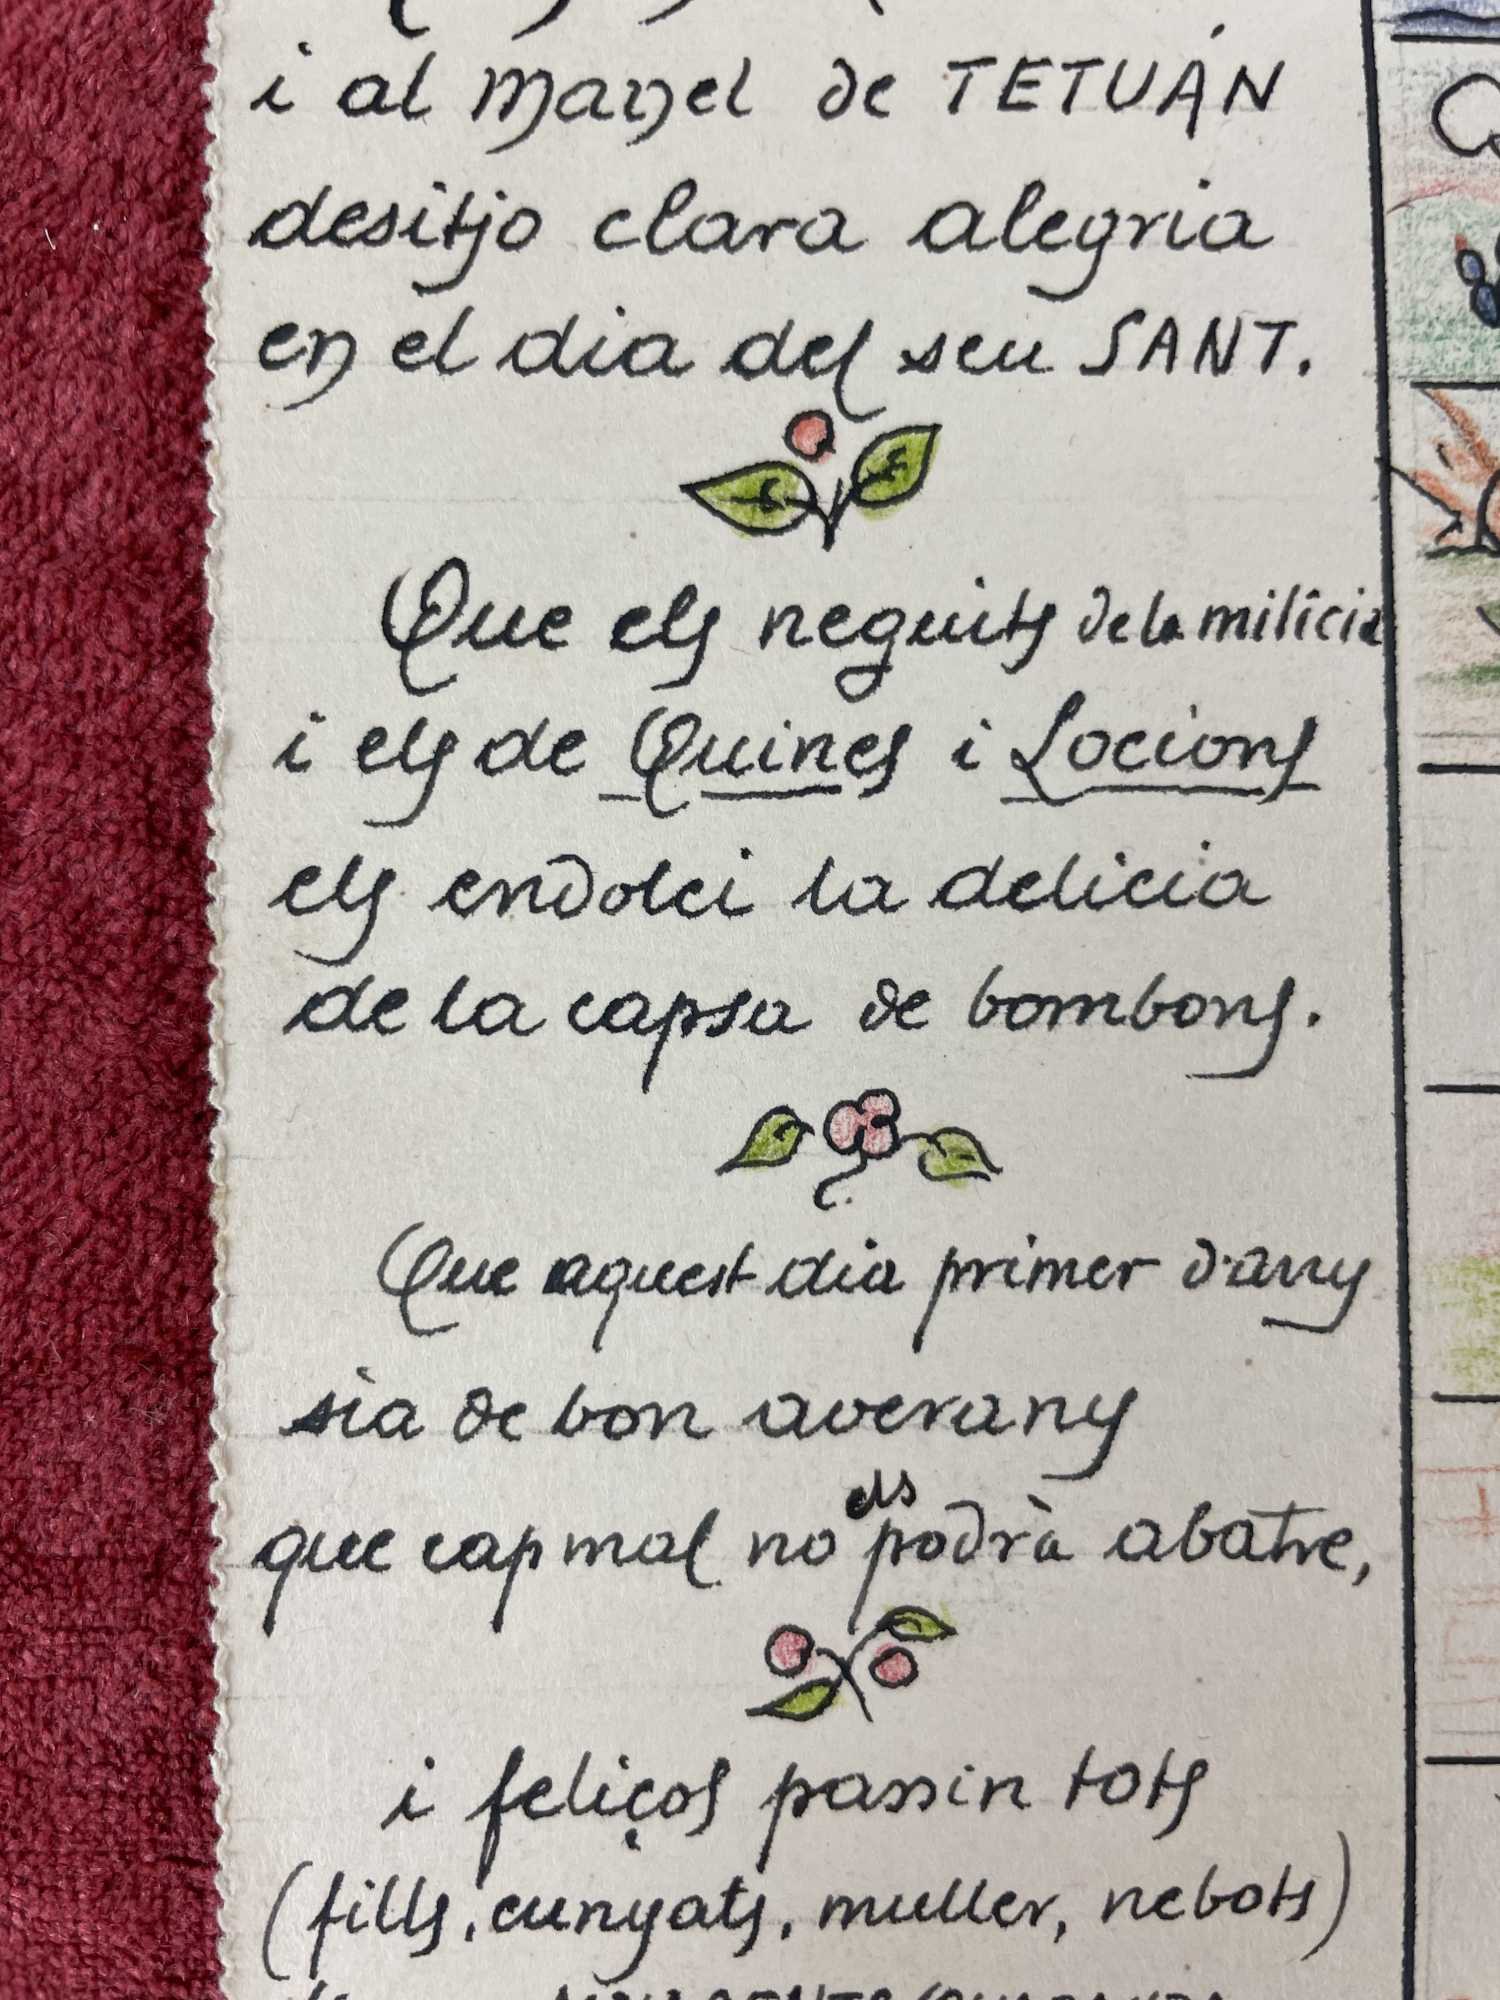 i al Manel de TETUÁN
desitjo clara alegria
en el dia del seu SANT.
Que els neguits de la milícia
i els de Quines i Locions
els endolci la delicia
de la capsa de bombons.
Que aquest dia primer d'any
sia de bon averany
que cap mal no els podrà abatre,
i feliços passin tots
(fills, cunyats, muller, nebots)